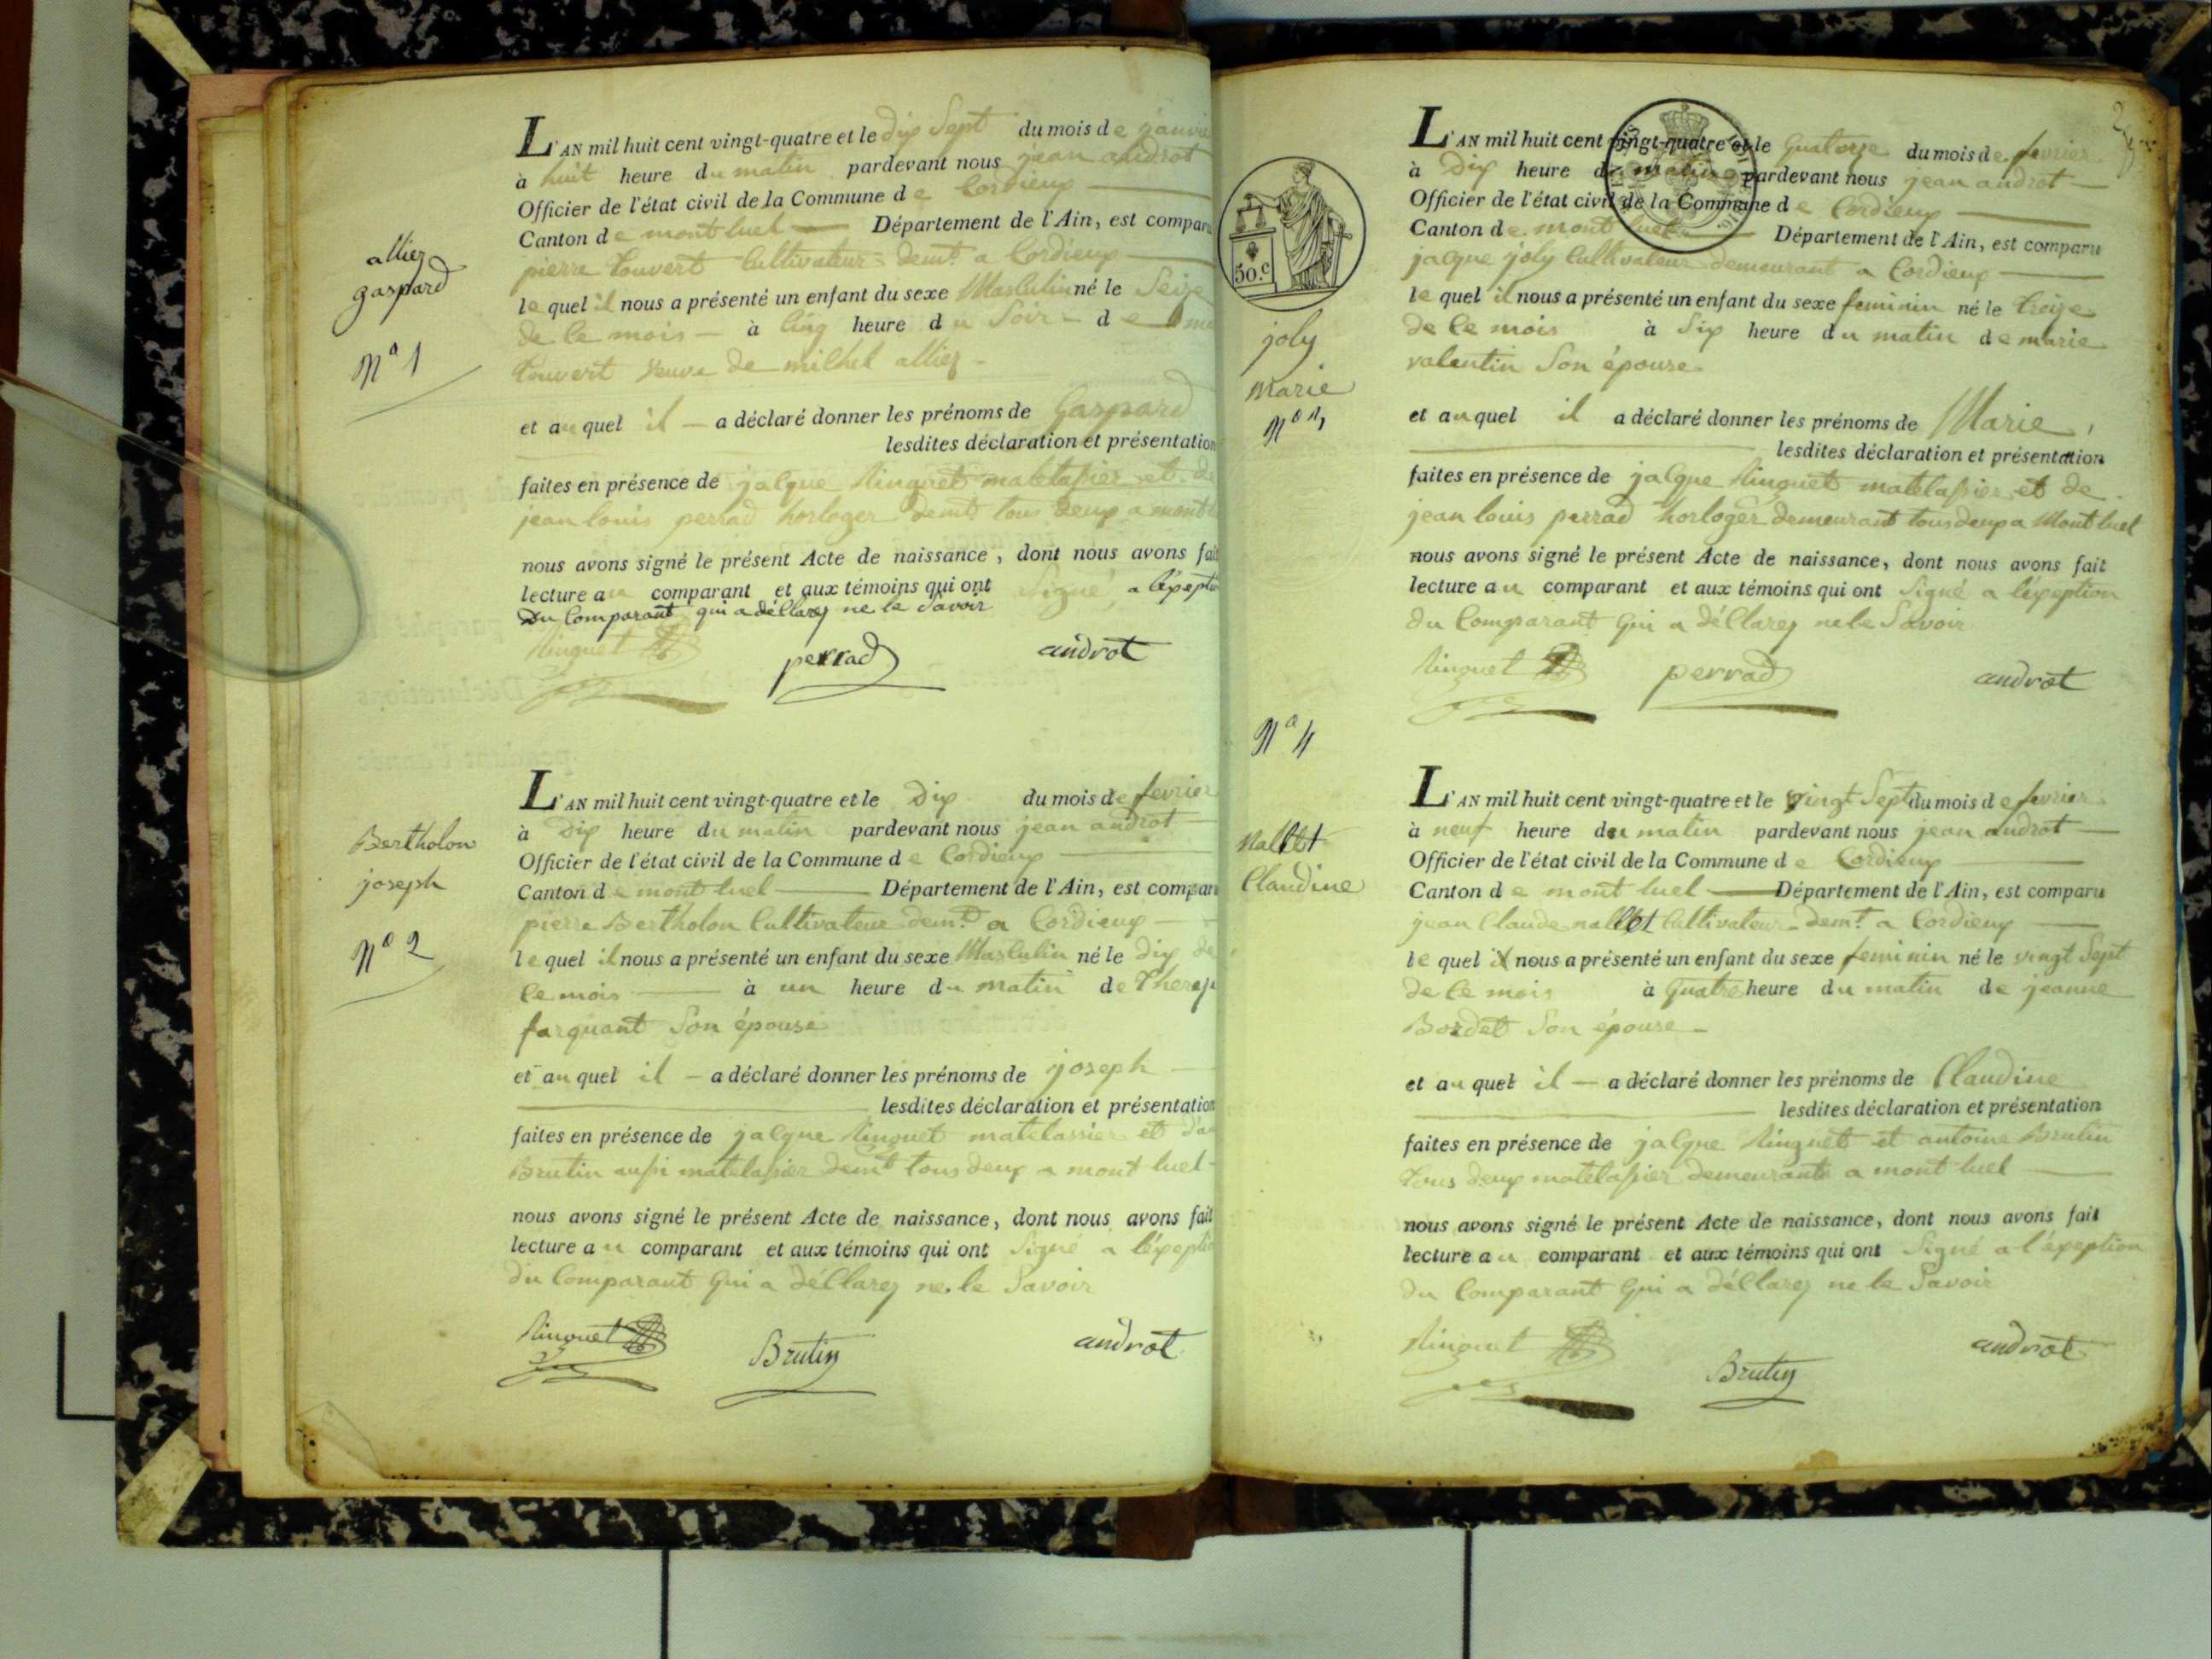 allier
gaspard
No 1
L'AN mil huit cent vingt-quatre et le dix Sept du mois de janvie
à huit heure du matin pardevant nous jean androt
Officier de l'état civil de la Commune de Cordieux
Canton de mont luel Département de l'Ain, est comparu
pierre Couvert Cultivateur demt. a Cordieux
lequel il nous a présenté un enfant du sexe Masculin né le Seize
de ce mois à cinq heure du Soir de
Couvert veuve de michel allier
et auquel il a déclaré donner les prénoms de Gaspard
lesdites déclaration et présentation
faites en présence de jacque Ringuet matelassier et de
jean louis perrad horloger demt. tous deux a mont
nous avons signé le présent Acte de naissance, dont nous avons fait
lecture au comparant et aux témoins qui ont Signé a l'éxeptio
du Comparant qui a déclarez ne le Savoir
Ringuet perrad androt
Bertholon
joseph
No 2
L'AN mil huit cent vingt-quatre et le Dix du mois de fevrier
à Dix heure du matin pardevant nous jean androt
Officier de l'état civil de la Commune de Cordieux
Canton de mont luel Département de l'Ain, est comparu
pierre Bertholon Cultivateur demt. a Cordieux
lequel il nous a présenté un enfant du sexe Masculin né le dix de
ce mois à un heure du matin de
farquant Son épouse
et auquel il a déclaré donner les prénoms de joseph
lesdites déclaration et présentation
faites en présence de jacque Ringuet matelassier et
Brutin aussi matelassier demt tous deux a mont luel
nous avons signé le présent Acte de naissance, dont nous avons fait
lecture au comparant et aux témoins qui ont Signé a l'éxeptio
du Comparant qui a déclarez ne le Savoir
Ringuet Brutin androt
2
50.c
joly
Marie
No 3
L'AN mil huit cent vingt-quatre et le Quatorze du mois de fevrier
à Dix heure du matin pardevant nous jean androt
Officier de l'état civil de la Commune de Cordieux
Canton de mont luel Département de l'Ain, est comparu
jacque joly Cultivateur demeurant a Cordieux
lequel il nous a présenté un enfant du sexe feminin né le treize
de ce mois à Six heure du matin de marie
valentin Son épouse
et auquel il a déclaré donner les prénoms de Marie,
lesdites déclaration et présentation
faites en présence de jacque Ringuet matelassier et de
jean louis perrad horloger demeurant tous deux a Mont luel
nous avons signé le présent Acte de naissance, dont nous avons fait
lecture au comparant et aux témoins qui ont Signé a l'éxeption
du Comparant qui a déclarez ne le Savoir
Ringuet perrad androt
No 4
Nallet
Claudine
L'AN mil huit cent vingt-quatre et le vingt Sept du mois de fevrier
à neuf heure du matin pardevant nous jean androt
Officier de l'état civil de la Commune de Cordieux
Canton de mont luel Département de l'Ain, est comparu
jean Claude nallet Cultivateur demt. a Cordieux
lequel il nous a présenté un enfant du sexe feminin né le vingt Sept
de ce mois à Quatre heure du matin de jeanne
Bordet Son épouse
et auquel il a déclaré donner les prénoms de Claudine
lesdites déclaration et présentation
faites en présence de jacque Ringuet et antoine Brutin
tous deux matelassier demeurants a mont luel
nous avons signé le présent Acte de naissance, dont nous avons fait
lecture au comparant et aux témoins qui ont Signé a l'éxeption
du Comparant qui a déclarez ne le Savoir
Ringuet Brutin androt